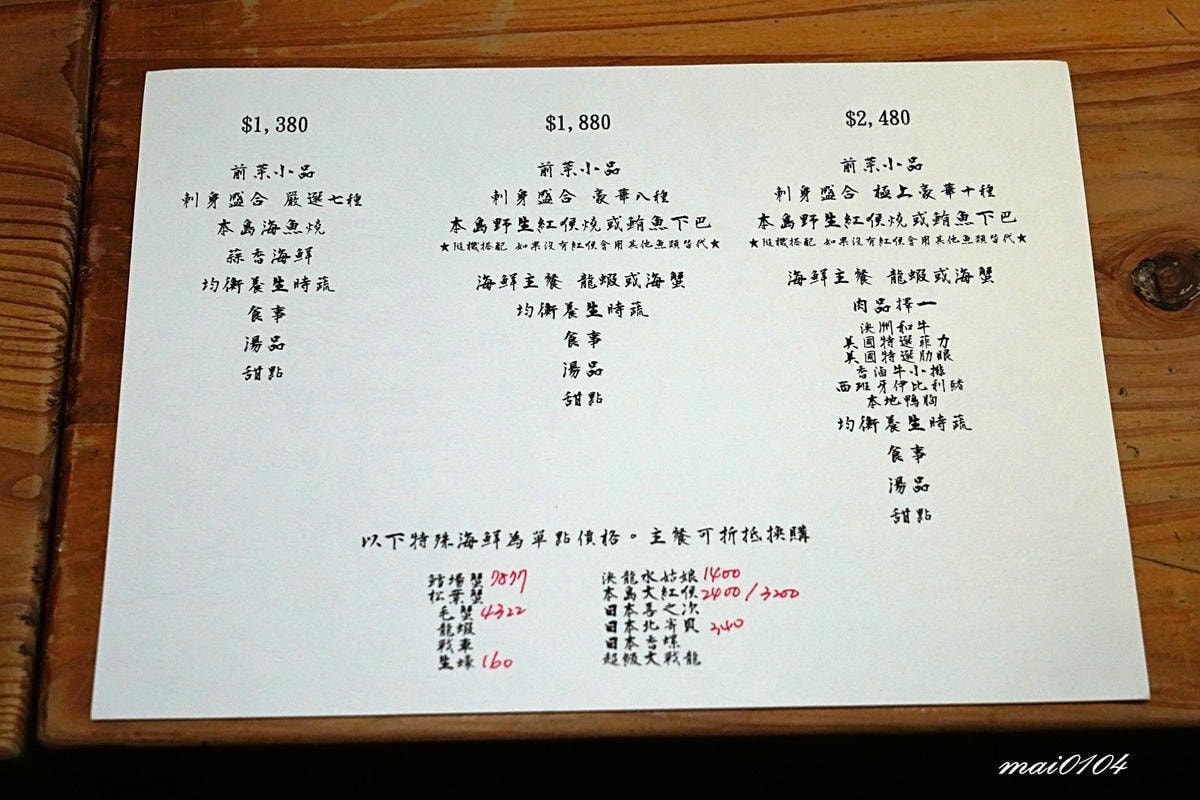 $1,380
前菜小品
刺身盛合 嚴選七種
本島海魚燒
蒜香海鮮
均衡養生時蔬
食事
湯品
甜點
$1,880
前菜小品
刺身盛合 豪華八種
本島野生紅喉燒或鮪魚下巴
★隨機搭配 如果沒有紅喉會用其他魚類替代★
海鮮主餐 龍蝦或海蟹
均衡養生時蔬
食事
湯品
甜點
$2,480
前菜小品
刺身盛合 極上豪華十種
本島野生紅喉燒或鮪魚下巴
★隨機搭配 如果沒有紅喉會用其他魚類替代★
海鮮主餐 龍蝦或海蟹
肉品擇一
澳洲和牛
美國特選菲力
美國特選肋眼
香滷牛小排
西班牙伊比利豬
本地鴨胸
均衡養生時蔬
食事
湯品
甜點
以下特殊海鮮為單點價格。主餐可折抵換購
鱈場蟹 7877
松葉蟹
毛蟹 4322
龍蝦
戰車
生蠔 160
澳龍水姑娘 1400
本島大紅喉 2400 / 3200
日本喜之次
日本北寄貝 240
日本香螺
超級大戰龍
mai0104